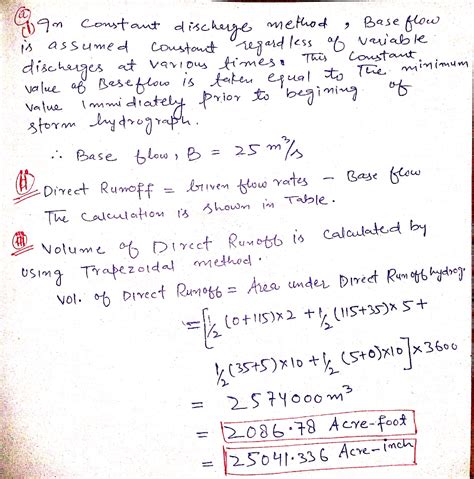 (a)
(i) In Constant discharge method, Base flow
is assumed constant regardless of variable
discharges at various times. This constant
value of Baseflow is taken equal to The minimum
value Immidiately prior to begining of
storm hydrograph.
∴ Base flow, B = 25 m³/s
(ii) Direct Runoff = Given flow rates - Base flow
The Calculation is shown in Table.
(iii) Volume of Direct Runoff is calculated by
using Trapezoidal method.
Vol. of Direct Runoff = Area under Direct Runoff hydrog
= [1/2 (0+115)×2 + 1/2 (115+35)×5 +
1/2 (35+5)×10 + 1/2 (5+0)×10] ×3600
= 2574000 m³
= 2086.78 Acre-foot
= 25041.336 Acre-inch